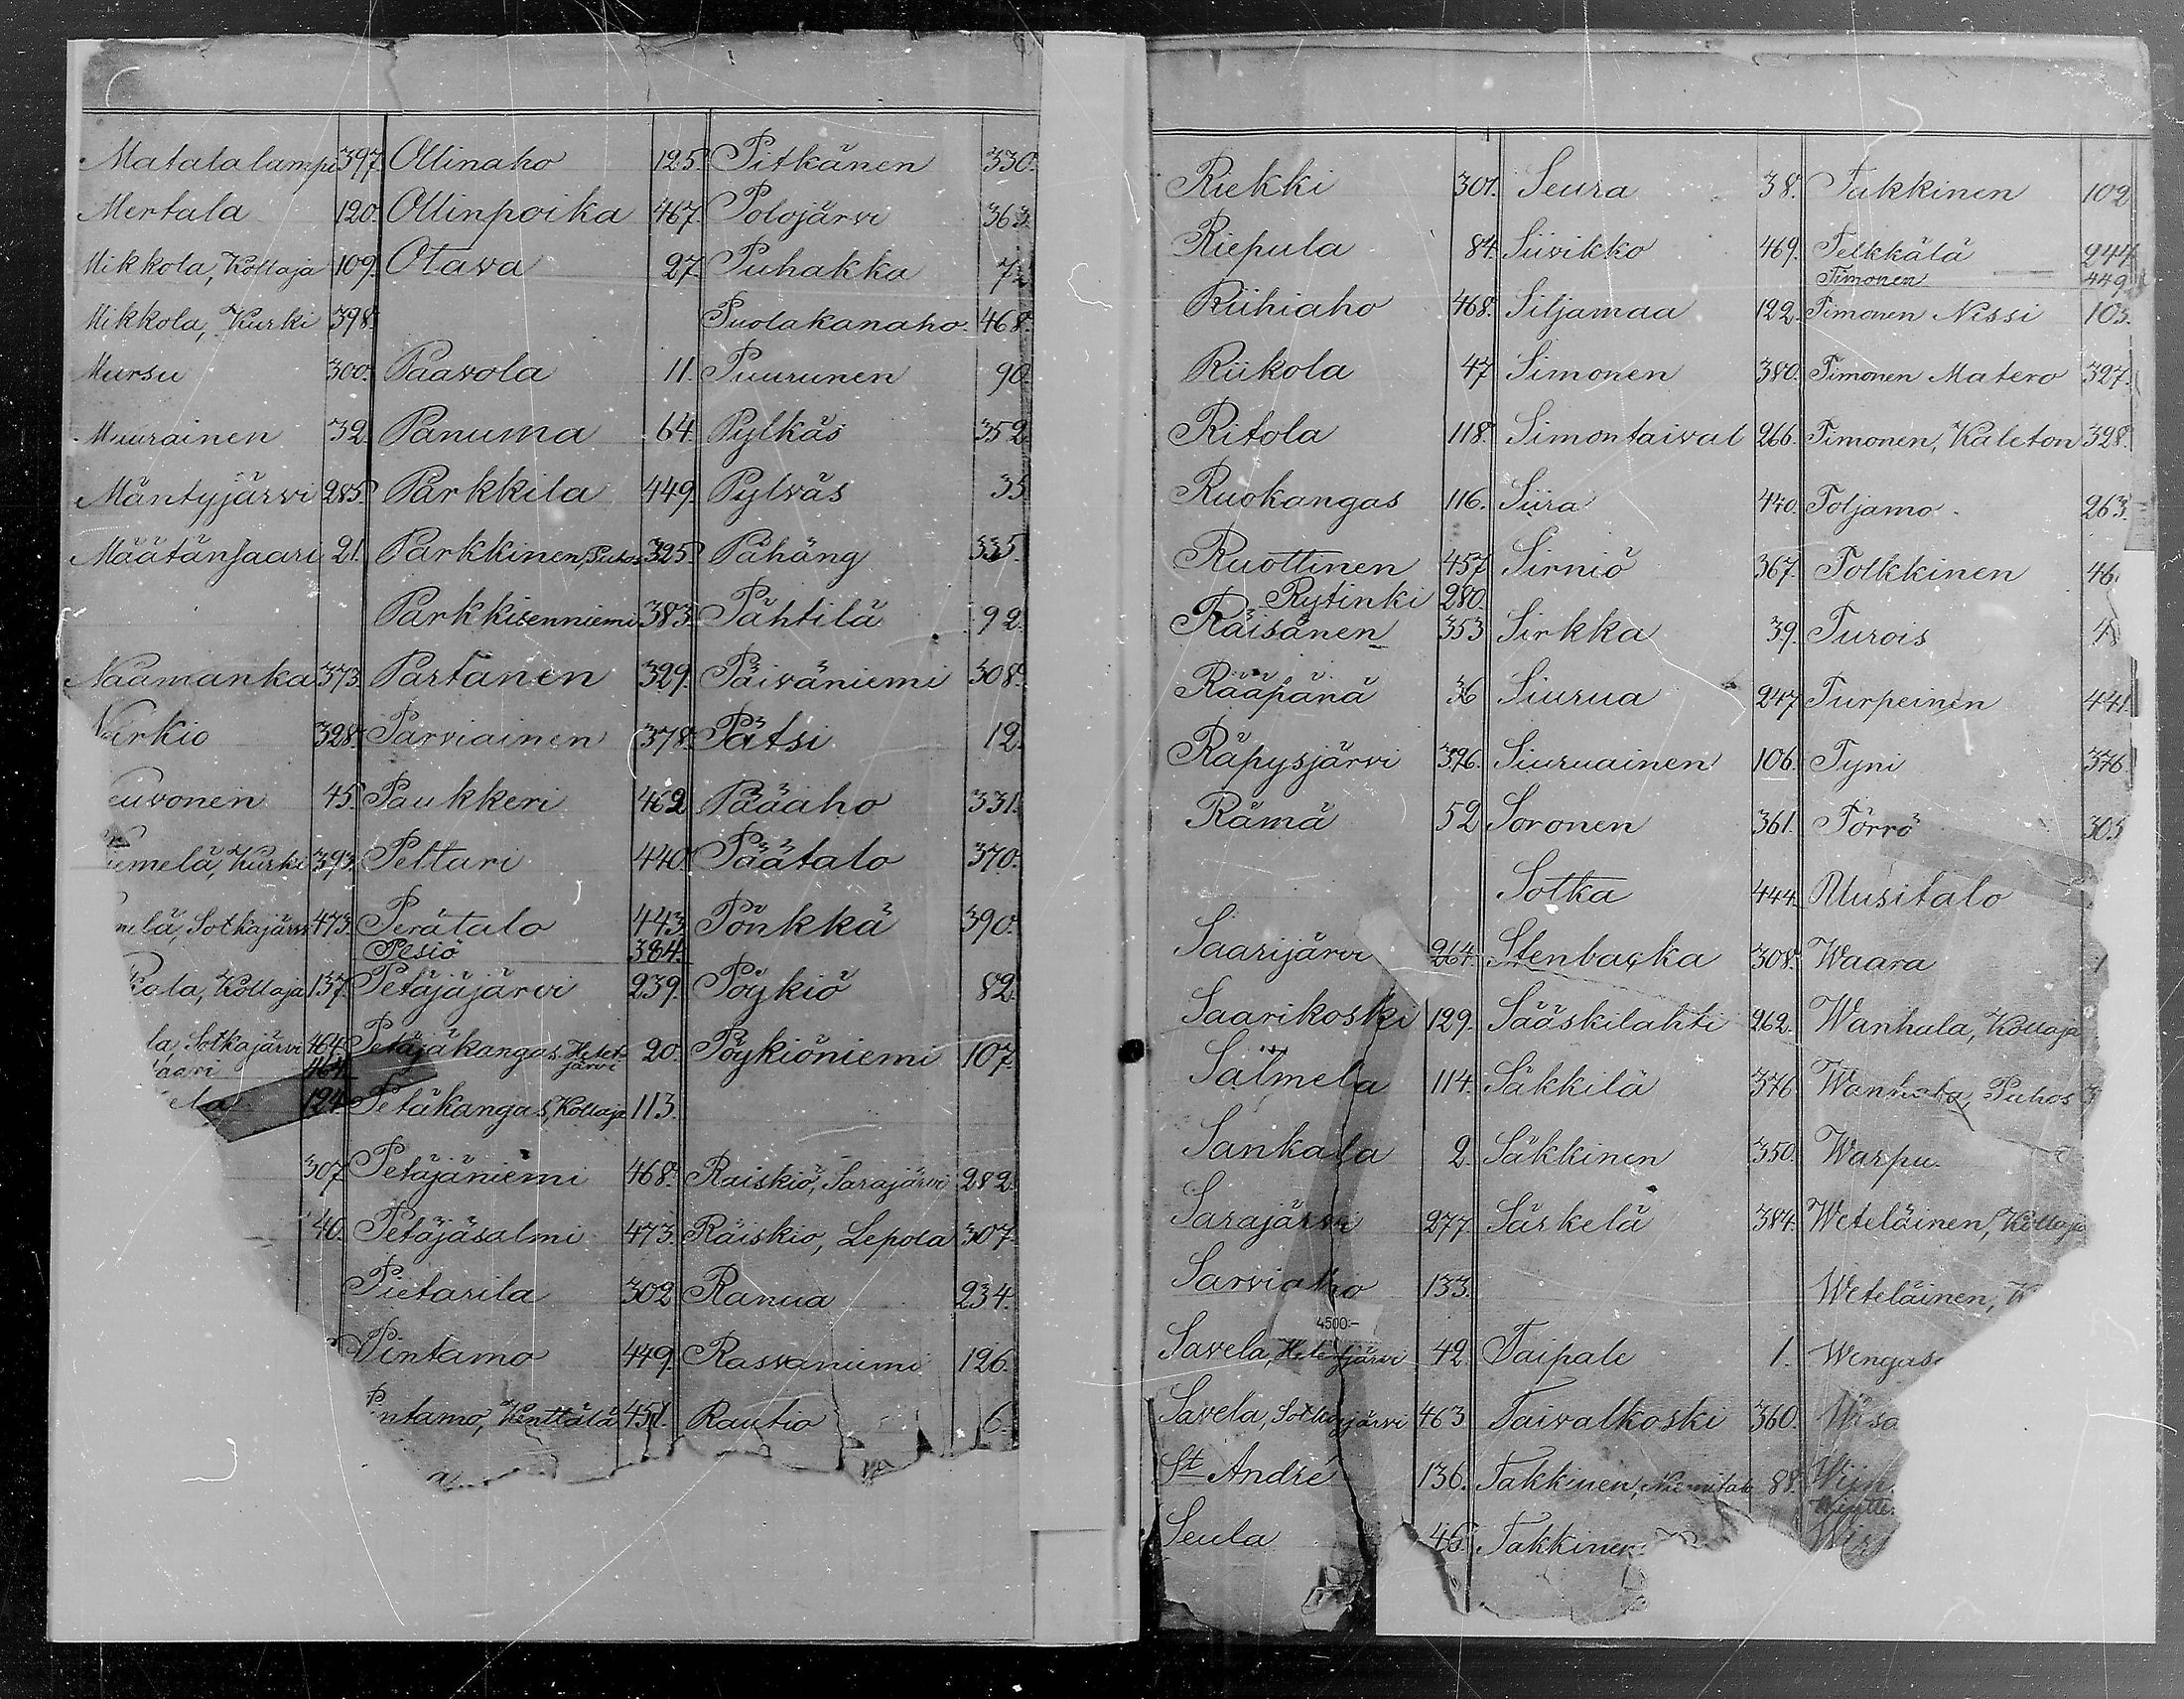 Matalalampi 397.
Mertala 120.
Mikkola, Kollaja 109.
Mikkola, Kurki 398.
Mursu 300.
Muurainen 32.
Mäntyjärvi 285.
Määtänsaari 21.
Naamanka 373.
Nirkio 328.
euvonen 45.
iemelä, Kurki 393.
melä, Sotkajärvi 473.
kola, Kollaja 137.
la, Sotkajärvi 464.
aari 464.
ela 124.
307
40.
Ollinaho 125.
Ollinpoika 467.
Otava 27.
Paavola 11.
Panuma 64.
Parkkila 449.
Parkkinen, Puhos 325.
Parkkisenniemi 383.
Partanen 329.
Parviainen 378.
Paukkeri 462
Peltari 440.
Perätalo 443.
Pesiö 384.
Petäjäjärvi 239.
Petäjäkangas. Hetejärvi 20.
Petäkangas, Kollaja 113.
Petäjäniemi 468.
Petäjäsalmi 473.
Pietarila 302
Pintamo 449.
ntamo, Kenttälä 451.
Pitkänen 330.
Polojärvi 363.
Puhakka 72
Puolakanaho. 468.
Puurunen 90.
Pylkäs 352
Pylväs 35
Pähäng 335.
Pähtilä 92.
Päiväniemi 308.
Pätsi 12.
Pääaho 331.
Päätalo 370.
Pönkkä 390.
Pöykiö 82.
Pöykiöniemi 107.
Räiskiö, Sarajärvi 282.
Räiskiö, Lepola 307.
Ranua 234.
Rasvaniemi 126.
Rautio 6.
Riekki 301.
Riepula 84.
Riihiaho 468.
Riikola 47
Ritola 118.
Ruokangas 116.
Ruottinen 457
Rytinki 280.
Räisänen 353
Rääpänä 36
Räpysjärvi 376.
Rämä 52
Saarijärvi 264.
Saarikoski 129.
Salmela 114.
Sankala 2.
Sarajärvi 277.
Sarviaho 133.
4500:-
Savela, Hetejärvi 42.
Savela, Sotkajärvi 463
St André 136.
Seula 46.
Seura 38.
Siivikko 469.
Siljamaa 122.
Simonen 380.
Simontaival 266.
Siira 440.
Sirniö 367.
Sirkka 39.
Siurua 247
Siuruainen 106.
Soronen 361.
Sotka 444.
Stenbacka 308.
Sääskilahti 262.
Säkkilä 376.
Säkkinen 350.
Särkelä 384.
Taipale 1.
Taivalkoski 360.
Takkinen, Niemitalo 88.
Takkinen
Takkinen 102
Telkkälä 244
Timonen 449
Timonen Nissi 103.
Timonen Matero 327.
Timonen, Kaleton 328.
Toljamo 263.
Tolkkinen 46.
Turois 4
Turpeinen 441.
Tyni 376.
Törrö 303
Uusitalo
Waara
Wanhala, Kollaja
Wanhala, Puhos 3
Warpu
Weteläinen, Kollaja
Weteläinen, K
Wengas
Wisa